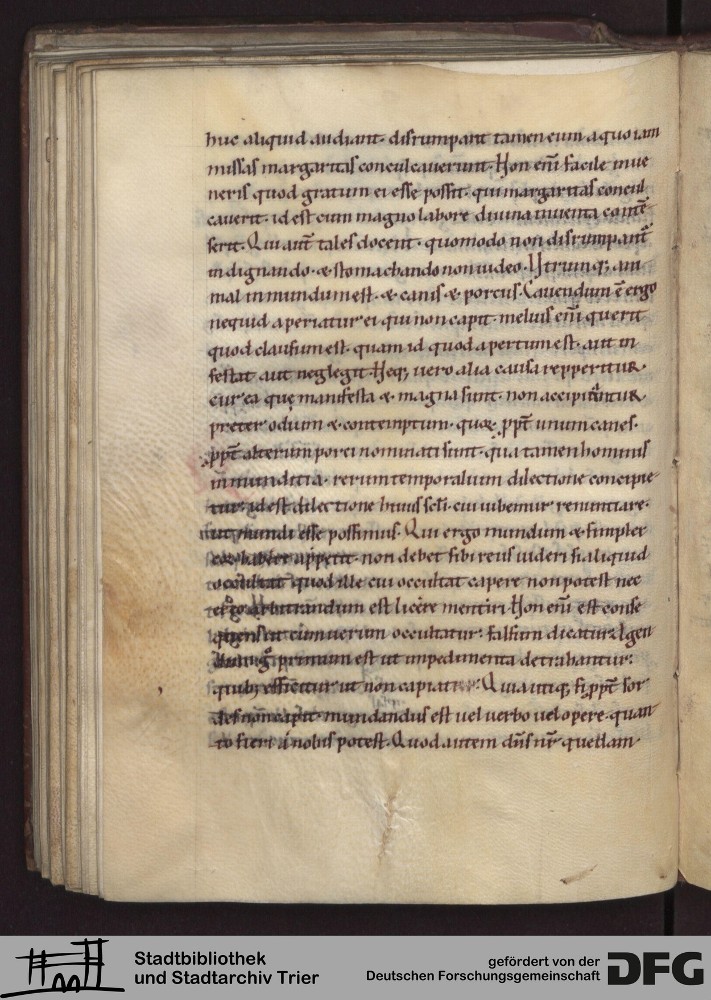 huc aliquid audiant· disrumpant tamen eum a quo iam
missas margaritas conculcauerunt· Non eni͞ facile inue
neris quod gratum ei esse possit· qui margaritas concul
cauerit· id est cum magno labore diuina inuenta conte͞
serit· Qui aut͞ tales docent· quomodo non disrumpant͞
indignando· & stomachando non uideo· Utrumq; ani
mal inmundum est· & canis & porcus· Cauendum e͞ ergo
nequid aperiatur ei qui non capit· melius eni͞ querit
quod clausum est· quam id quod apertum est· aut in
festat aut neglegit· Neq; uero alia causa repperitur
cur ea quę manifesta & magna sunt· non accipiantur
preter odium & contemptum· quor ppt͞ unum canes·
ppt͞ alterum porci nominati sunt· qua tamen hominis
inmunditia· rerum temporalium dilectione concipie
tur· id est dilectione huius scl͞i· cui iubemur renuntiare·
ut mundi esse possimus· Qui ergo mundum & simplex
cor habere appetit· non debet sibi reus uideri si aliquid
occultat quod ille cui occultat capere non potest nec
ergo arbitrandum est licere mentiri· Non eni͞ est conse
quens ut cum uerum occultatur· falsum dicatur· Agen
primum est ut impedimenta detrahantur·
quib; efficitur ut non capiat· Quia utiq; si ppt͞ sor
des non capit· mundandus est uel uerbo uel opere· quan
to fieri a nobis potest· Quod autem dn͞s nr͞ quedam
Stadtbibliothek
und Stadtarchiv Trier
gefördert von der
Deutschen Forschungsgemeinschaft
DFG